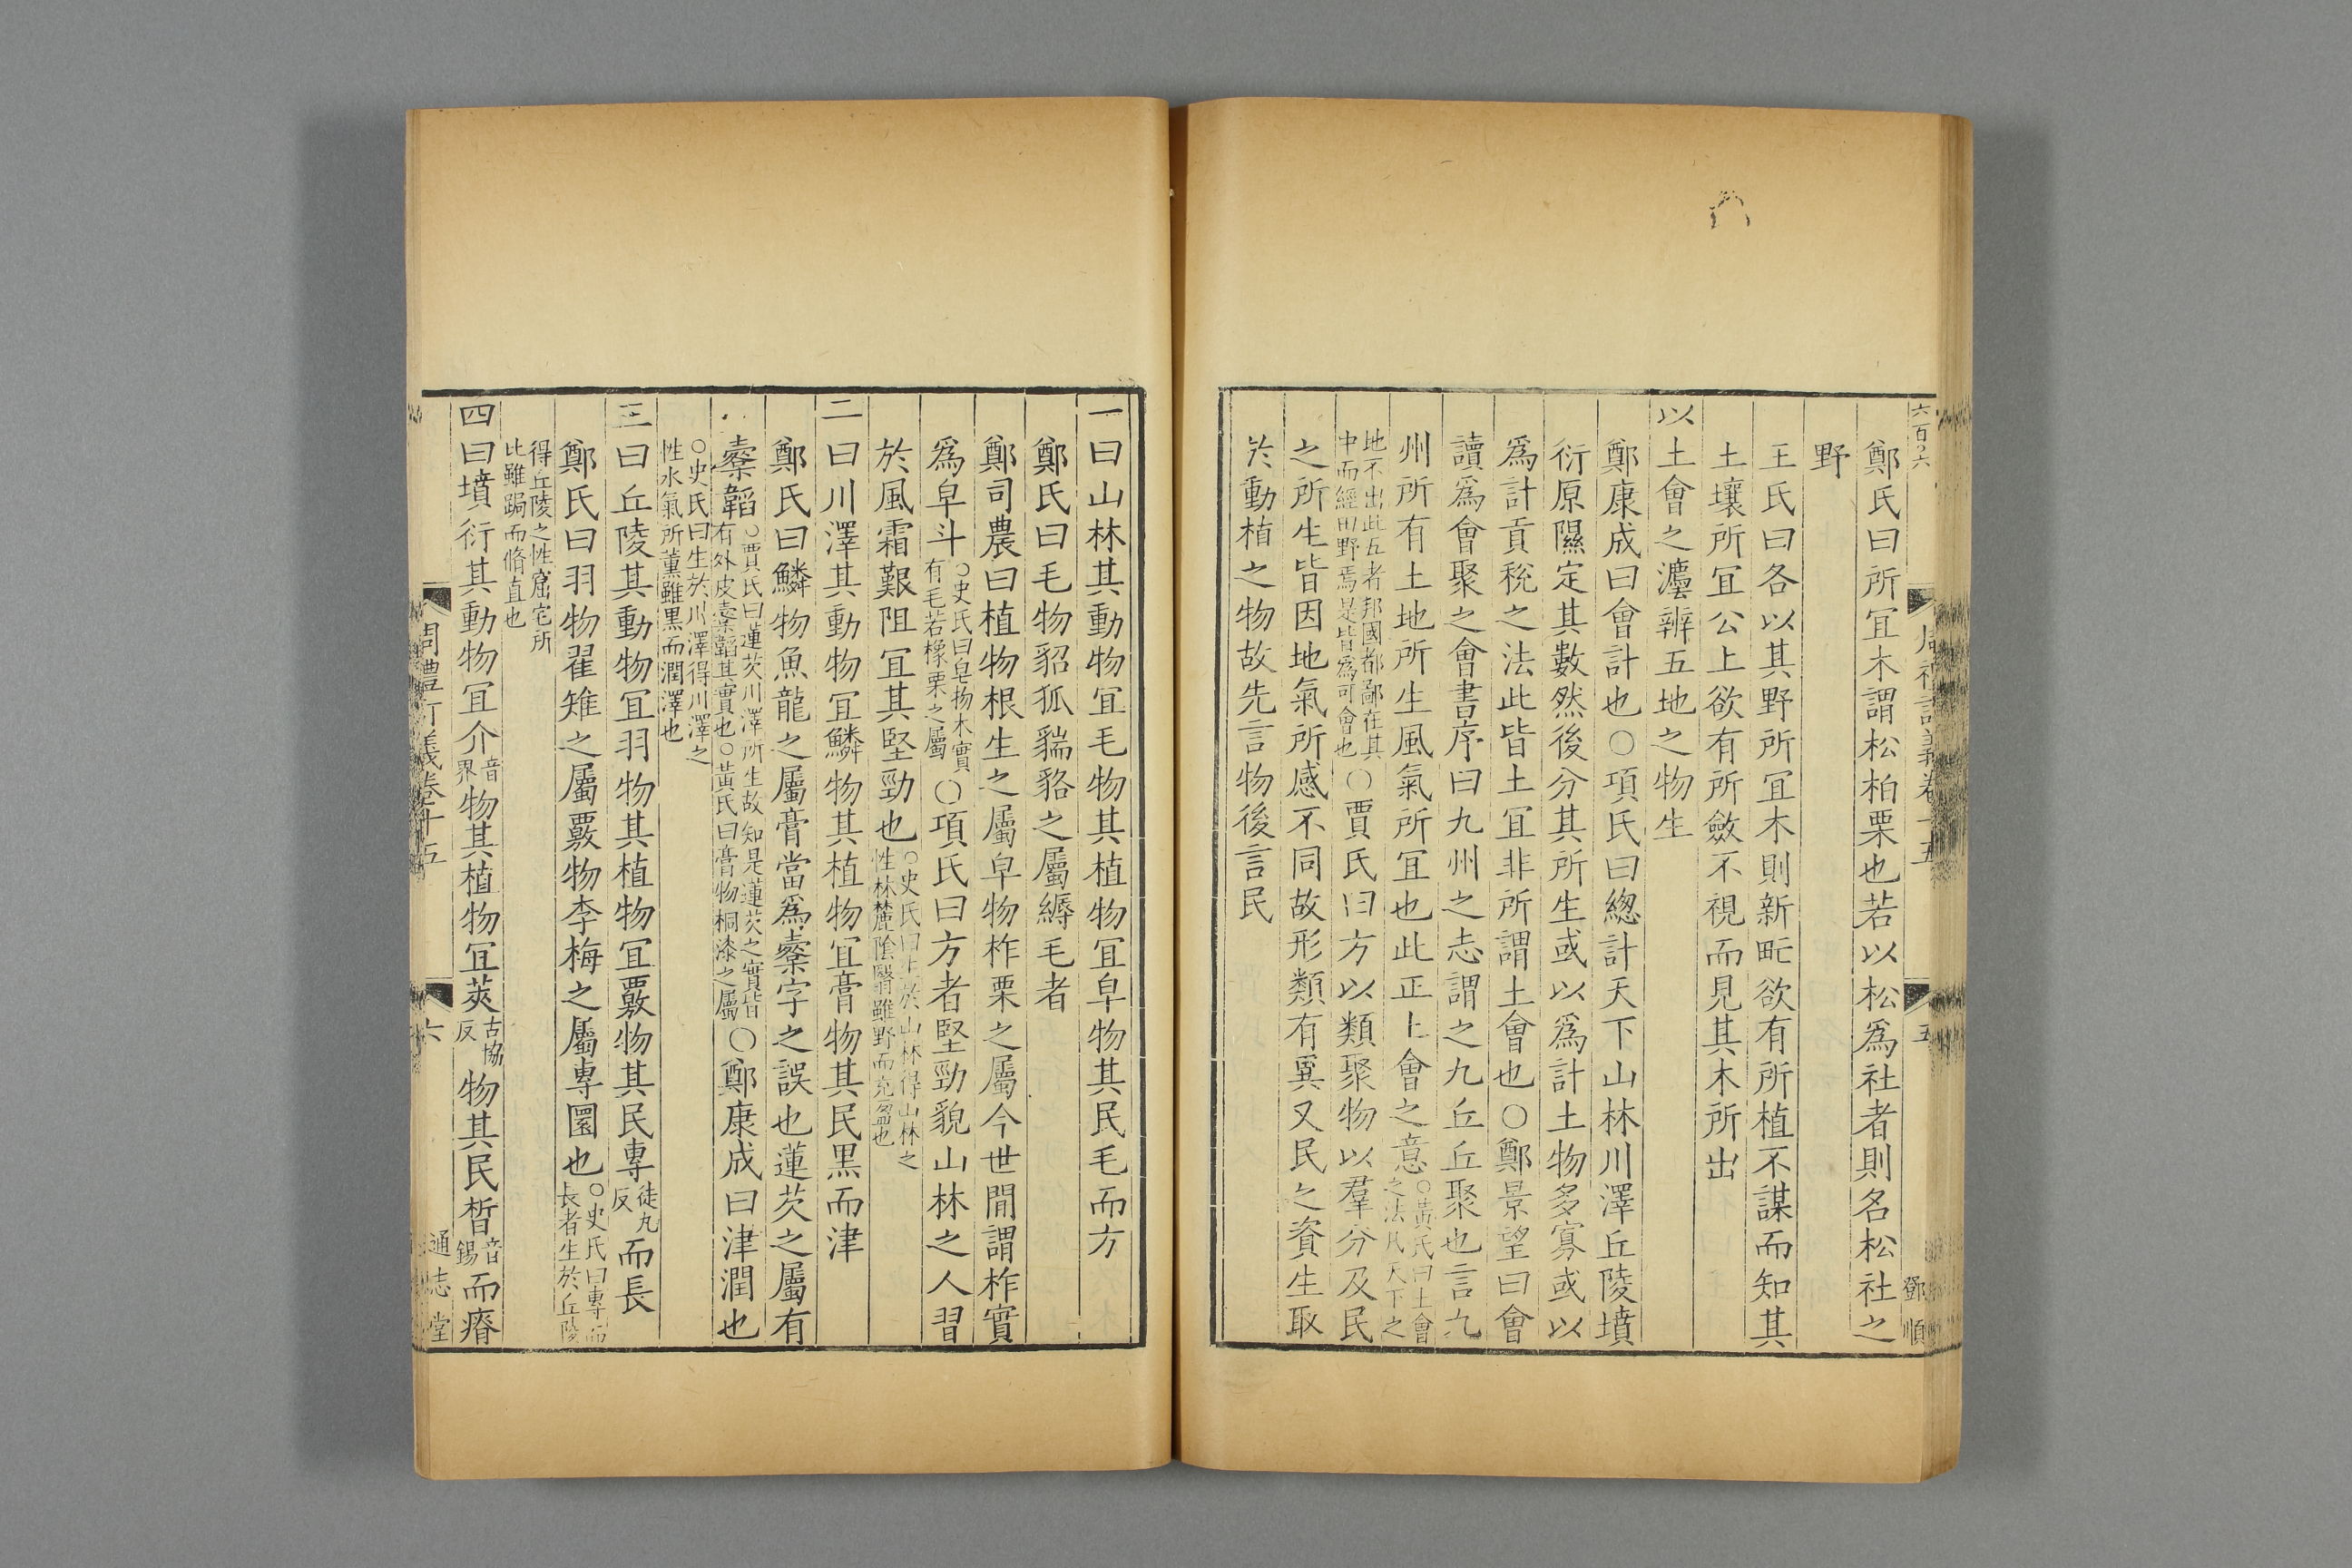 六百〇六
鄭氏曰所冝木謂松柏栗也若以松爲社者則名松社之
野
王氏曰各以其野所冝木則新甿欲有所植不謀而知其
土壤所冝公上欲有所斂不視而見其木所出
以土會之灋辨五地之物生
鄭康成曰會計也○項氏曰總計天下山林川澤丘陵墳
衍原隰定其數然後分其所生或以爲計土物多寡或以
爲計貢稅之法此皆土冝非所謂土會也○鄭景望曰會
讀爲會聚之會書序曰九州之志謂之九丘丘聚也言九
州所有土地所生風氣所冝也此正土會之意○黃氏曰土會之法凡天下之
地不出此五者邦國都鄙在其中而經田野焉是皆爲可會也○賈氏曰方以類聚物以羣分及民
之所生皆因地氣所感不同故形類有異又民之資生取
於動植之物故先言物後言民
周禮訂義卷十五
五
鄧順
一曰山林其動物冝毛物其植物冝皁物其民毛而方
鄭氏曰毛物貂狐貒貉之屬縟毛者
鄭司農曰植物根生之屬皁物柞栗之屬今世閒謂柞實
爲皁斗○史氏曰皂物木實有毛若橡栗之屬○項氏曰方者堅勁貌山林之人習
於風霜艱阻冝其堅勁也○史氏曰生於山林得山林之性林麓陰翳雖野而充盈也
二曰川澤其動物冝鱗物其植物冝膏物其民黑而津
鄭氏曰鱗物魚龍之屬膏當爲櫜字之誤也蓮芡之屬有
櫜韜○賈氏曰蓮芡川澤所生故知是蓮芡之實皆有外皮櫜韜其實也○黃氏曰膏物桐漆之屬○鄭康成曰津潤也
○史氏曰生於川澤得川澤之性水氣所薰雖黑而潤澤也
三曰丘陵其動物冝羽物其植物冝覈物其民專徒九反而長
鄭氏曰羽物翟雉之屬覈物李梅之屬專圜也○史氏曰專而長者生於丘陵
得丘陵之性窟宅所比雖跼而脩直也
四曰墳衍其動物冝介音界物其植物冝莢古協反物其民晳音錫而瘠
周禮訂義卷十五
六
通志堂